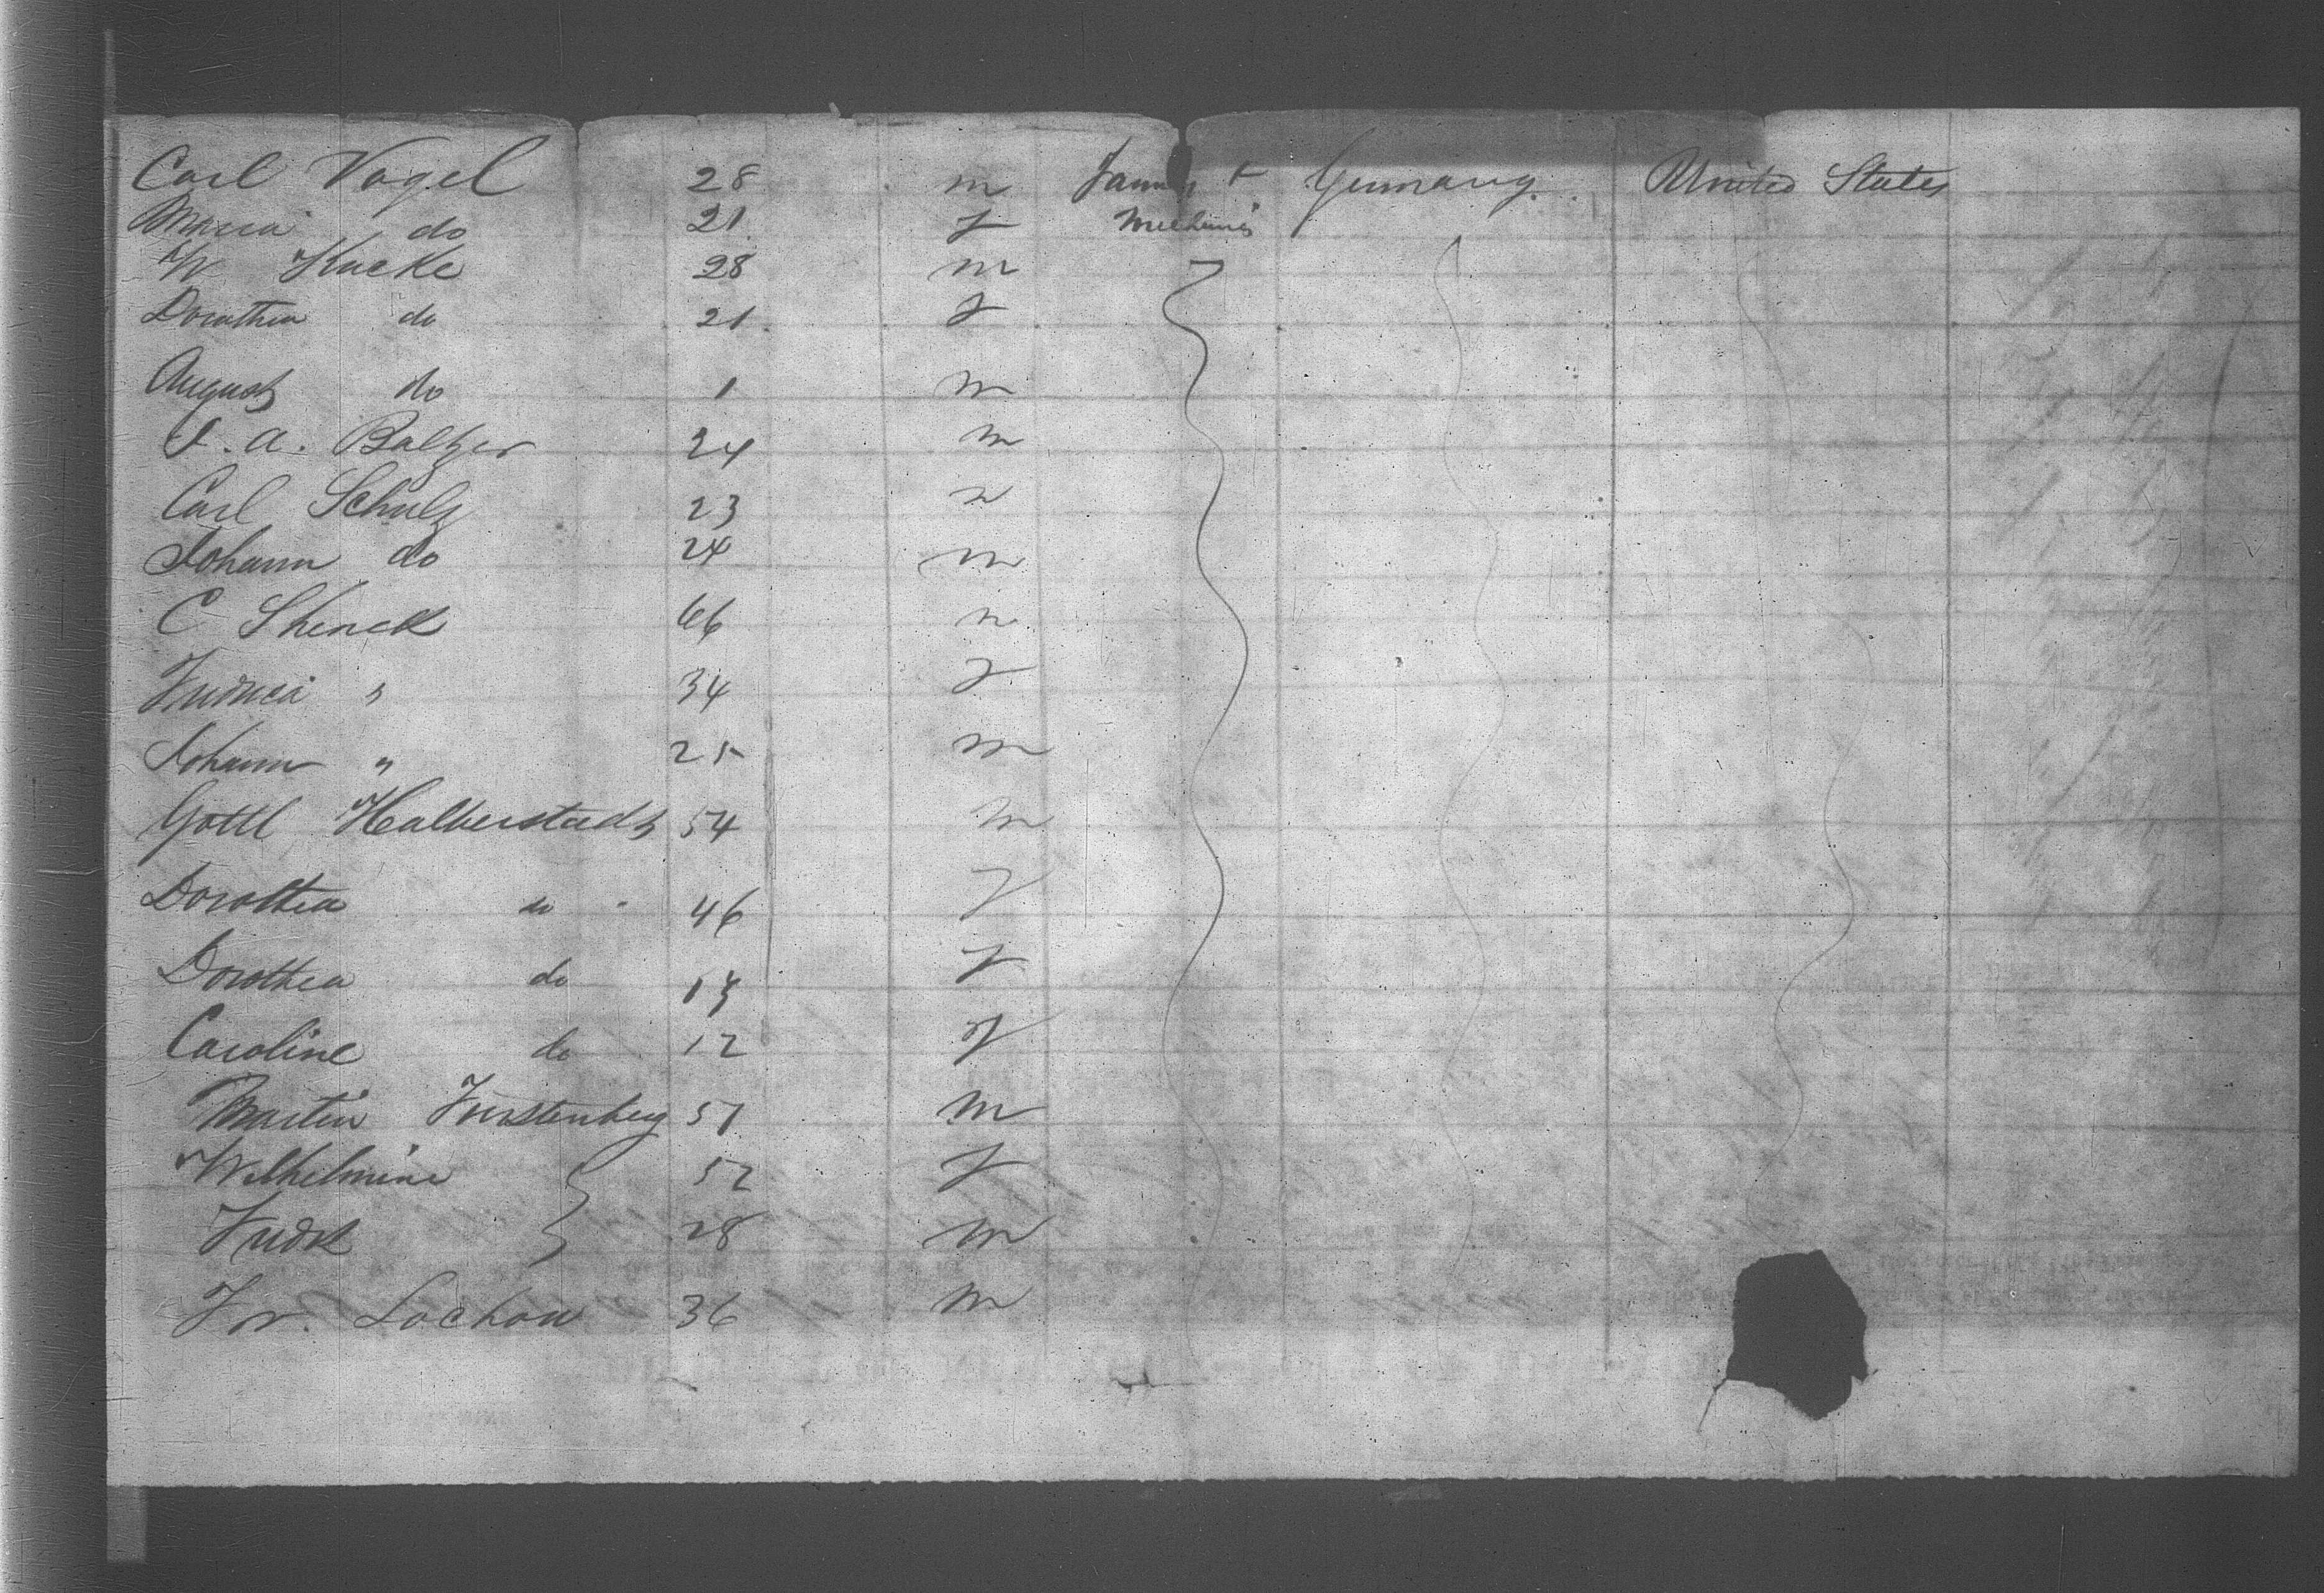 Carl Vogel 28 m Farmer & Germany. United States
Maria do 21 f Mechanics
W Kucke 28 m
Dorothea do 21 f
August do 1 m
F. A. Baltzer 24 m
Carl Schulz 23 m
Johann do 24 m
C Shenck 66 m
34 f
Johann " 25 m
Gottl Halberstadt 54 m
Dorothea do 46 f
Dorothea do f
Caroline do 12 f
Martin Furstenberg 51 m
Wilhelmine 52 f
Fredk 28 m
Fr. Lochow 36 m